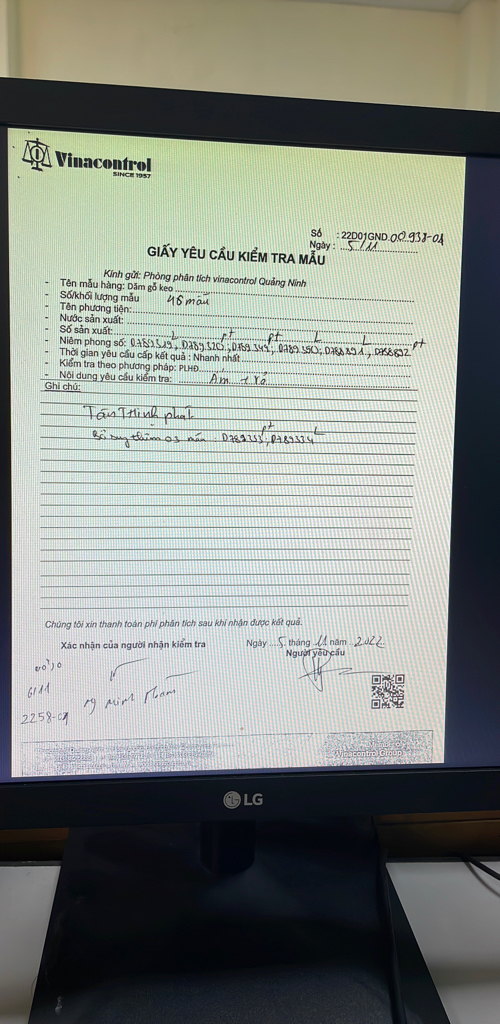 Vinacontrol
SINCE 1957
Số : 22D01GND.00938-04
Ngày : 5/11
GIẤY YÊU CẦU KIỂM TRA MẪU
Kính gửi: Phòng phân tích vinacontrol Quảng Ninh
- Tên mẫu hàng: Dăm gỗ keo
- Số/khối lượng mẫu 46 mẫu
- Tên phương tiện:
- Nước sản xuất:
- Số sản xuất:
L pt pt L L pt
- Niêm phong số: D789319, D789320, D789349, D789350, D788891, D788892
- Thời gian yêu cầu cấp kết quả : Nhanh nhất
- Kiểm tra theo phương pháp: PLHĐ
- Nội dung yêu cầu kiểm tra: Ẩm + Vỏ
Ghi chú:
Tân Thịnh phát
pt L
Bổ sung thêm 03 mẫu
Chúng tôi xin thanh toán phí phân tích sau khi nhận được kết quả.
Xác nhận của người nhận kiểm tra
Ngày 5 tháng 11 năm 2022
Người yêu cầu
6/11
2258-01
Vinacontrol Group
LG